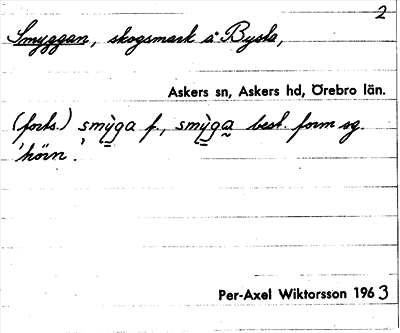 2
Smyggan, skogsmark å Bysta,
Askers sn, Askers hd, Örebro län.
(forts.) smỳga f., smỳga best. form sg.
'hörn'.
Per-Axel Wiktorsson 1963